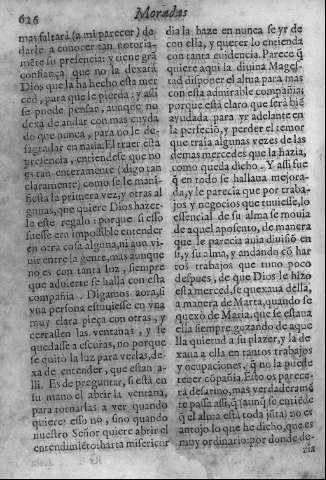 626
Moradas
mas faltarà (a mi parecer) de-
darle a conocer tan notoria-
mẽte su presencia: y tiene grã
confiança, que no la dexarà
Dios que la ha hecho esta mer
ced, para que la pierda: y assi
se puede pensar; aunque no
dexa de andar con mas cuyda
do que nunca, para no le de-
sagradar en nada. El traer esta
presencia, entiendese que no
es tan enteramente (digo tan
claramente) como se le mani-
fiesta la primera vez, y otras al
gunas, que quiere Dios hazer-
la este regalo: porque si esso
fuesse era impossible entender
en otra cosa alguna, ni aun vi-
uir entre la gente, mas aunque
no es con tanta luz, siempre
que aduierte se halla con esta
compañia. Digamos aora, si
vna persona estuuiesse en vna
muy clara pieça con otras, y
cerrassen las ventanas, y se
quedasse a escuras, no porque
se quitò la luz para verlas, de-
xa de entender, que estan a-
lli. Es de preguntar, si està en
su mano el abrir la ventana,
para tornarlas a ver quando
quiere? esso no, sino quando
nuestro Señor quiere abrir el
entendimiẽto: harta misericor
dia la haze en nunca se yr de
con ella, y querer lo entienda
con tanta euidencia. Parece q̃
quiere aqui la diuina Mages-
tad disponer el alma para mas
con esta admirable compañia:
porque està claro que serà biẽ
ayudada para yr adelante en
la perfeciõ, y perder el temor
que traìa algunas vezes de las
demas mercedes que la hazia,
como queda dicho. Y assi fue
q̃ en todo se hallaua mejora-
da, y le parecia que por traba-
jos y negocios que tuuiesse, lo
essencial de su alma se mouia
de aquel aposento, de manera
que le parecia auia diuisiõ en
si, y su alma, y andando cõ har
tos trabajos que tuuo poco
despues, de que Dios le hizo
esta merced, se quexaua della,
a manera de Marta, quando se
quexò de Maria, que se estaua
ella siempre gozando de aque
lla quietud a su plazer, y la de
xaua a ella en tantos trabajos
y ocupaciones, q̃ no la puede
tener cõpañia. Esto os parece-
rà desatino, mas verdaderamẽ
te passa assi, q̃ (aunq̃ se entiẽde
q̃ el alma està toda jũta) no es
antojo lo que he dicho, que es
muy ordinario: por donde de-
zia